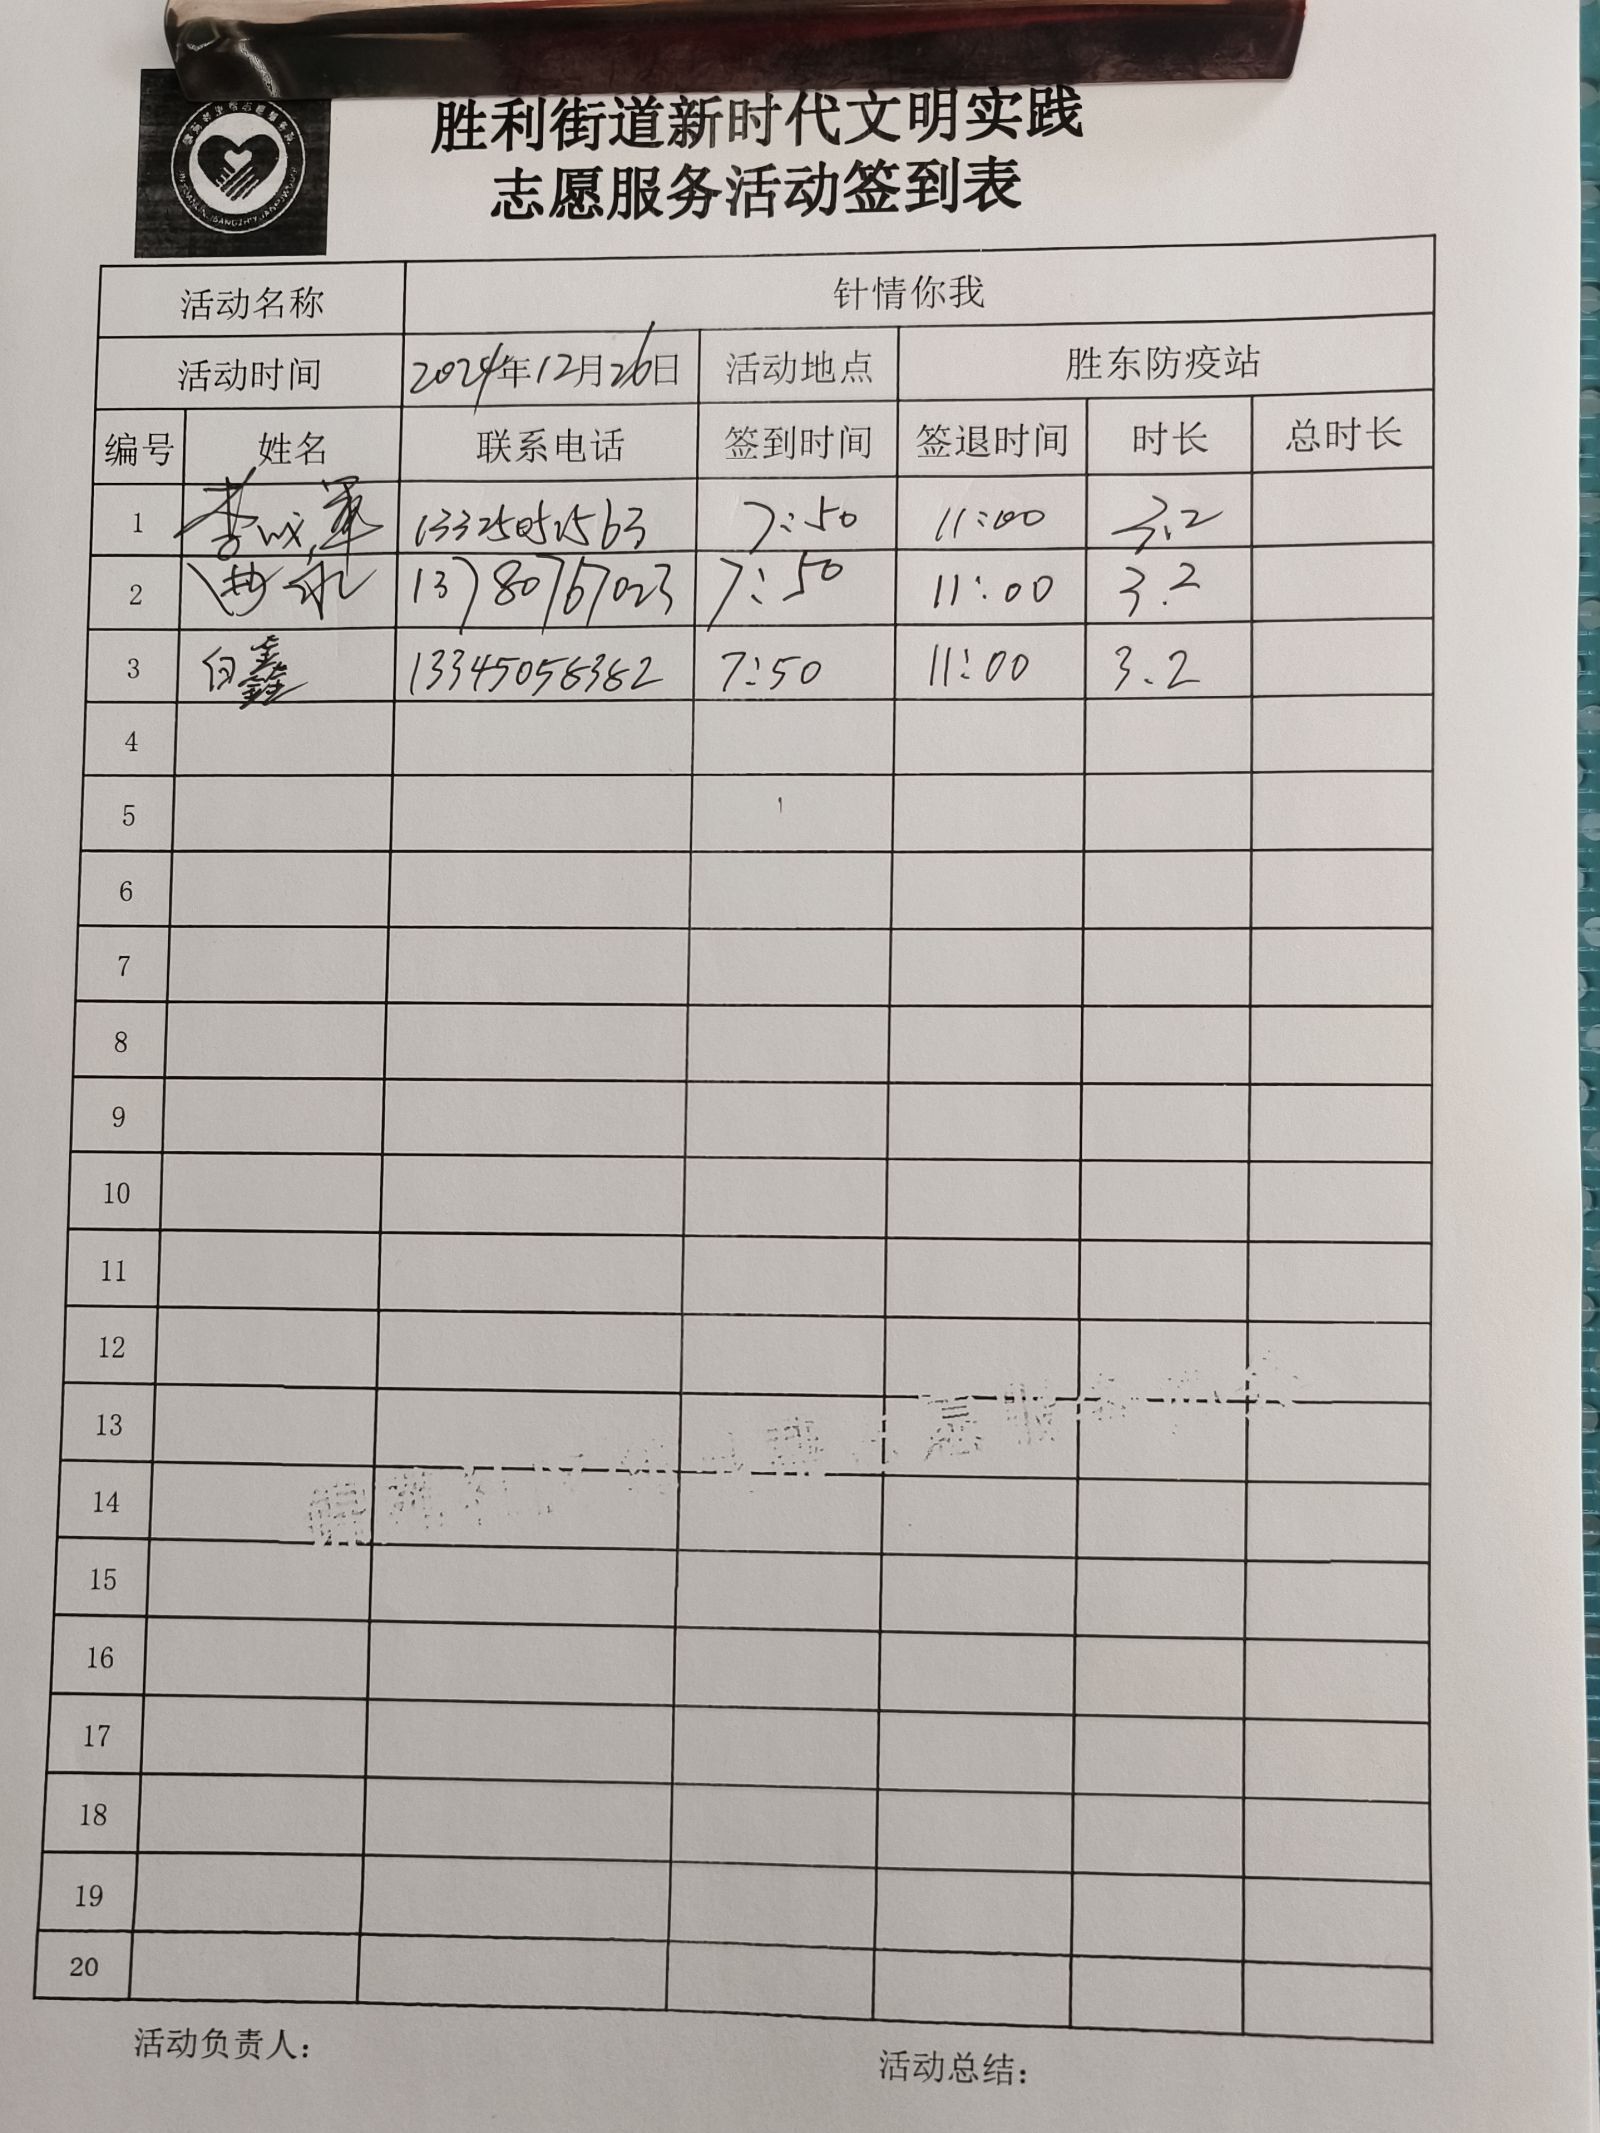 胜利街道新时代文明实践
志愿服务活动签到表
活动名称 针情你我
活动时间 2024年12月26日 活动地点 胜东防疫站
编号 姓名 联系电话 签到时间 签退时间 时长 总时长
1 李成军 7:50 11:00 3.2
2 13780767023 7:50 11:00 3.2
3 白鑫 13345056362 7:50 11:00 3.2
4
5
6
7
8
9
10
11
12
13
14
15
16
17
18
19
20
活动负责人：
活动总结：